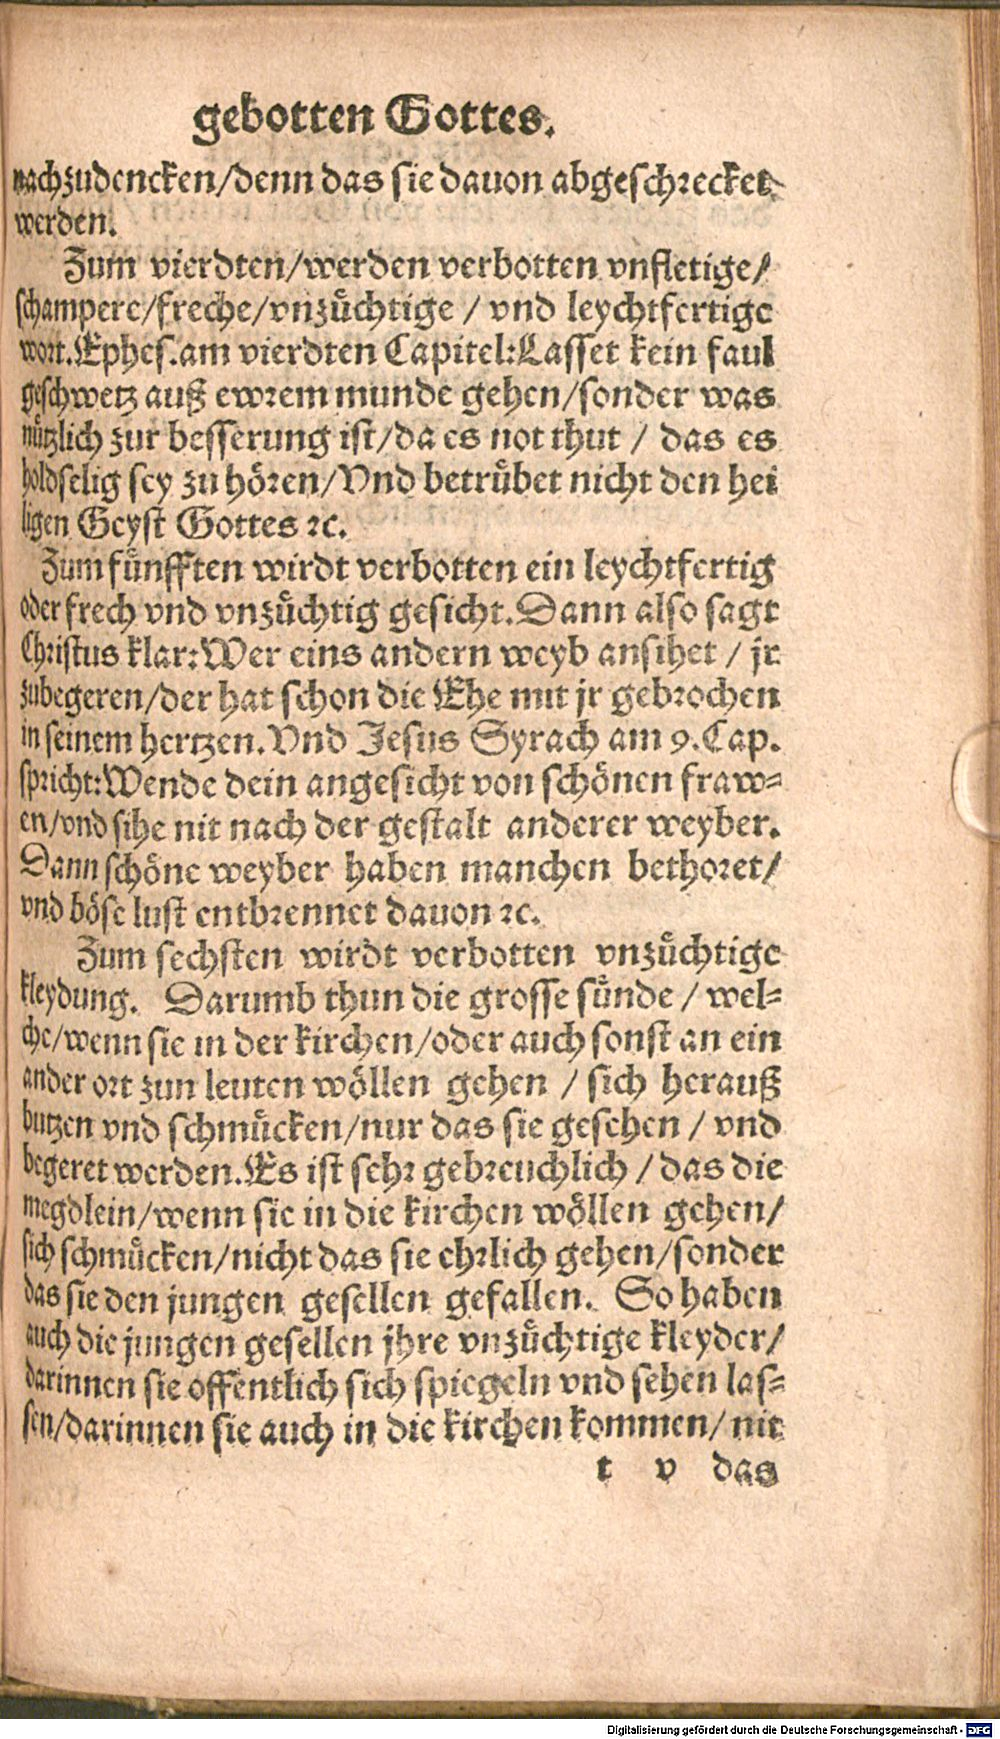 gebotten Gottes.
nachzudencken/denn das sie dauon abgeschrecket
werden.
Zum vierdten/werden verbotten vnfletige/
schampere/freche/vnzüchtige / vnd leychtfertige
wort. Ephes. am vierdten Capitel: Lasset kein faul
geschwetz auß ewrem munde gehen/sonder was
nützlich zur besserung ist/da es not thut / das es
holdselig sey zu hören/Vnd betrübet nicht den hei
ligen Geyst Gottes ꝛc.
Zum fünfften wirdt verbotten ein leychtfertig
oder frech vnd vnzüchtig gesicht. Dann also sagt
Christus klar: Wer eins andern weyb ansihet / jr
zubegeren/der hat schon die Ehe mit jr gebrochen
in seinem hertzen. Vnd Jesus Syrach am 9. Cap.
spricht: Wende dein angesicht von schönen fraw-
en/vnd sihe nit nach der gestalt anderer weyber.
Dann schöne weyber haben manchen bethoret/
vnd böse lust entbrennet dauon ꝛc.
Zum sechsten wirdt verbotten vnzüchtige
kleydung. Darumb thun die grosse sünde / wel-
che/wenn sie in der kirchen/oder auch sonst an ein
ander ort zun leuten wöllen gehen / sich herauß
butzen vnd schmücken/nur das sie gesehen / vnd
begeret werden. Es ist sehr gebreuchlich / das die
megdlein/wenn sie in die kirchen wöllen gehen/
sich schmücken/nicht das sie ehrlich gehen/sonder
das sie den jungen gesellen gefallen. So haben
auch die jungen gesellen jhre vnzüchtige kleyder/
darinnen sie offentlich sich spiegeln vnd sehen las-
sen/darinnen sie auch in die kirchen kommen/ nit
t v das
Digitalisierung gefördert durch die Deutsche Forschungsgemeinschaft - DFG